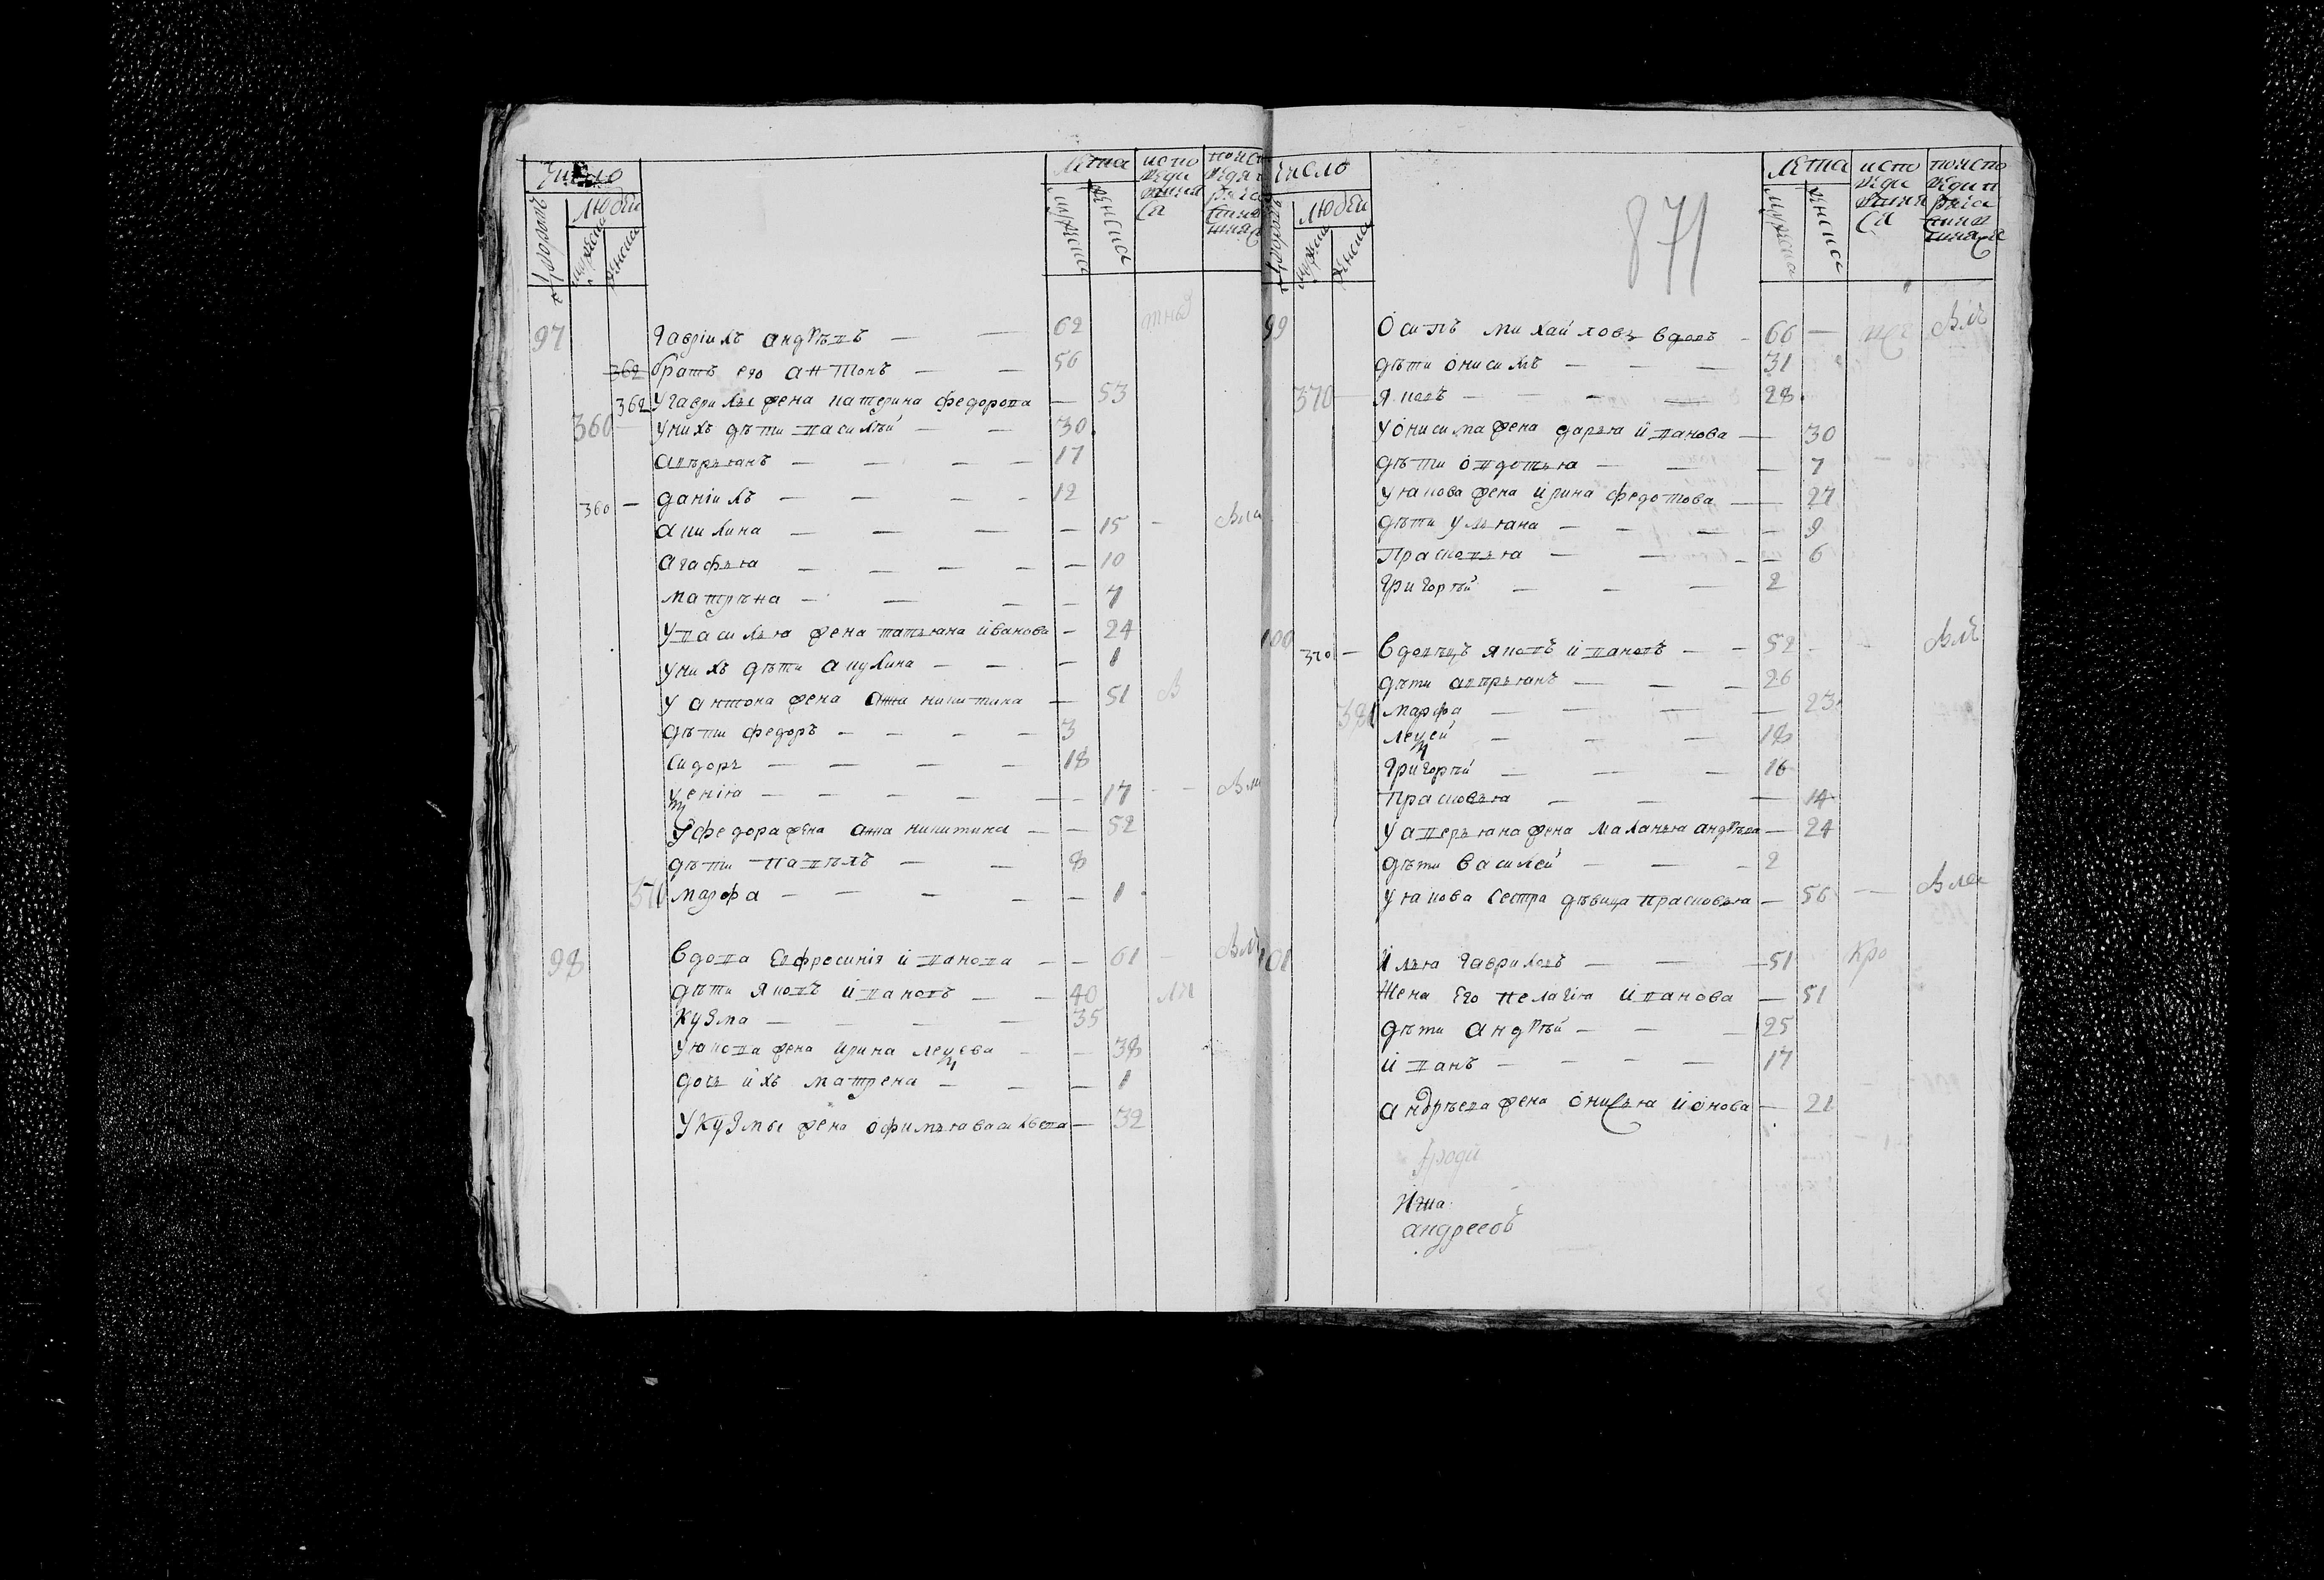 Число
Людей
мужска
женска
Лѣта
мужска
женска
испо
97 Гавріилъ андрѣевъ — — 62
362 братъ его антонъ — — 56
362 У гаврилы жена катерина федорова — 53
360 У нихъ дѣти василѣй — — 30
аверьянъ — — — — 17
360 — даніилъ — — — 12
акилина — — — — 15 —
агафья — — — — — 10
матрѣна — — — — 7
У василья жена татьяна иванова — 24
У нихъ дѣти акулина — — — 1
У антона жена анна никитина — 51
дѣти федоръ — — — — 3
Сидоръ — — — — 18
ѯенія — — — — — 17 — —
У федора жена анна никитина — — 52
дѣти павелъ — — 8
371 марфа — — — — — 1
98 Вдова Евфросинія иванова — — 61 —
дѣти яковъ ивановъ — — 40
Кузма — — — — 35
У якова жена ирина леѯѣева — — 38
дочь ихъ матрена — — — 1
У Кузмы жена офимья васильева — 32
Число
Людей
мужска
женска
Лѣта
мужска
женска
испо
871
99 Осипъ михайловъ вдовъ — 66 —
дѣти онисимъ — — — 31
370 яковъ — — — — 28
У онисима жена дарья иванова — 30
дѣти овдотья — — — 7
У якова жена ирина федотова — 27
дѣти ульяна — — — — 9
Прасковья — — — — 6
Григорѣй — — — 2
100
370 — Вдовецъ яковъ ивановъ — — 52 — —
дѣти аверьянъ — — — 26
381 марфа — — — — 23
леѯѣй — — — 18
Григорѣй — — — 16
Прасковья — — — 14
У аверьяна жена маланья андрѣева — 24
дѣти василей — — — 2
У якова сестра дѣвица прасковья — 56 —
101 Илья гавриловъ — — — 51
Жена его пелагія иванова — 51
дѣти андрѣй — — — 25
иванъ — — — — 17
андрѣева жена онисья ионова — 21
андреевъ